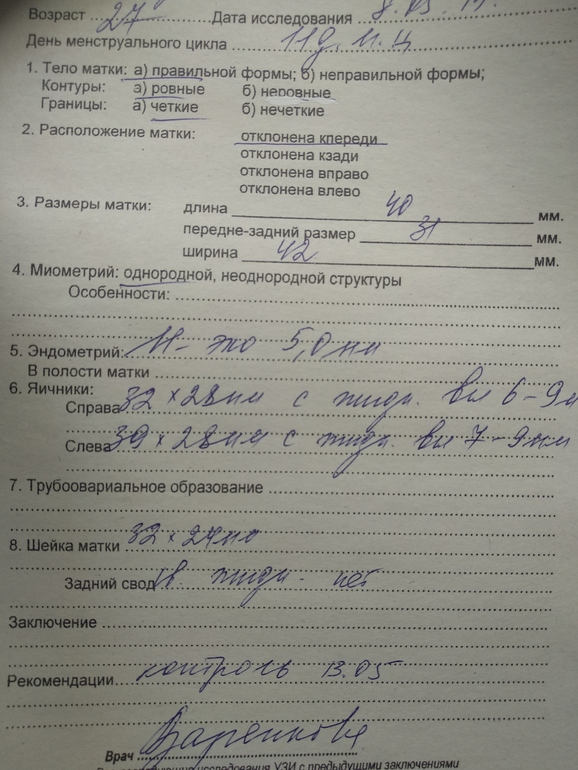 Возраст 27 Дата исследования 8.05.
День менструального цикла 11 д. м.ц.
1. Тело матки: а) правильной формы; б) неправильной формы;
Контуры: а) ровные б) неровные
Границы: а) четкие б) нечеткие
2. Расположение матки: отклонена кпереди
отклонена кзади
отклонена вправо
отклонена влево
3. Размеры матки: длина 40 мм.
передне-задний размер 31 мм.
ширина 42 мм.
4. Миометрий: однородной, неоднородной структуры
Особенности:
5. Эндометрий: М-эхо 5,0 мм
В полости матки
6. Яичники:
Справа 32 х 28 мм с жидк. вкл 6-9 м
Слева 39 х 28 мм с жидк. вкл 7-9 мм
7. Трубоовариальное образование
8. Шейка матки 32 х 24 мм
Задний свод св. жидк. нет
Заключение
Рекомендации контроль 13.05
Врач
исследования УЗИ с предыдущими заключениями